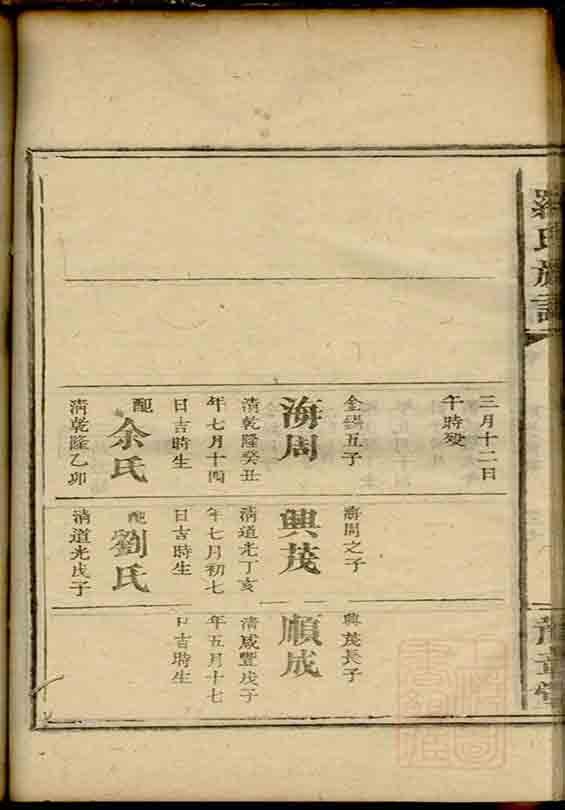 羅氏族譜
三月十二日
午時歿
金錫五子
海周
清乾隆癸丑
年七月十四
日吉時生
配
余氏
清乾隆乙卯
海周之子
興茂
清道光丁亥
年七月初七
日吉時生
配
劉氏
清道光戊子
興茂長子
順成
清咸豐戊子
年五月十七
日吉時生